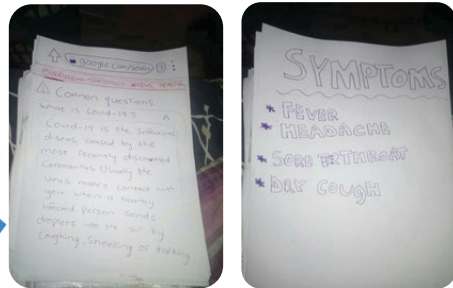 google.com/search
Common questions
What is Covid-19?
Covid-19 is the infectious
diseas caused by the
most recently discovered
Coronavirus Usually the
virus makes contact with
you when a nearby
infected person sends
droplets into the air by
Coughing, Sneezing or talking.
SYMPTOMS
* FEVER
* HEADACHE
* SORE THROAT
* DRY COUGH